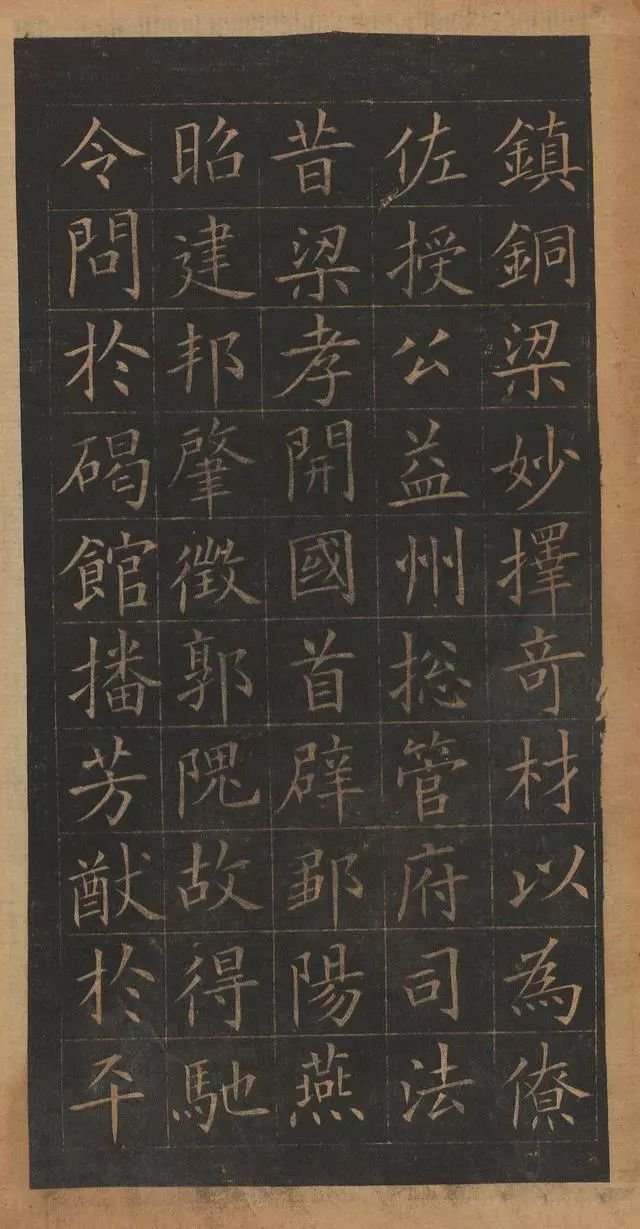 鎮銅梁妙擇竒材以為僚
佐授公益州捴管府司法
昔梁孝開國首辟鄒陽燕
昭建邦肇徵郭隗故得馳
令問於碣館播芳猷於平